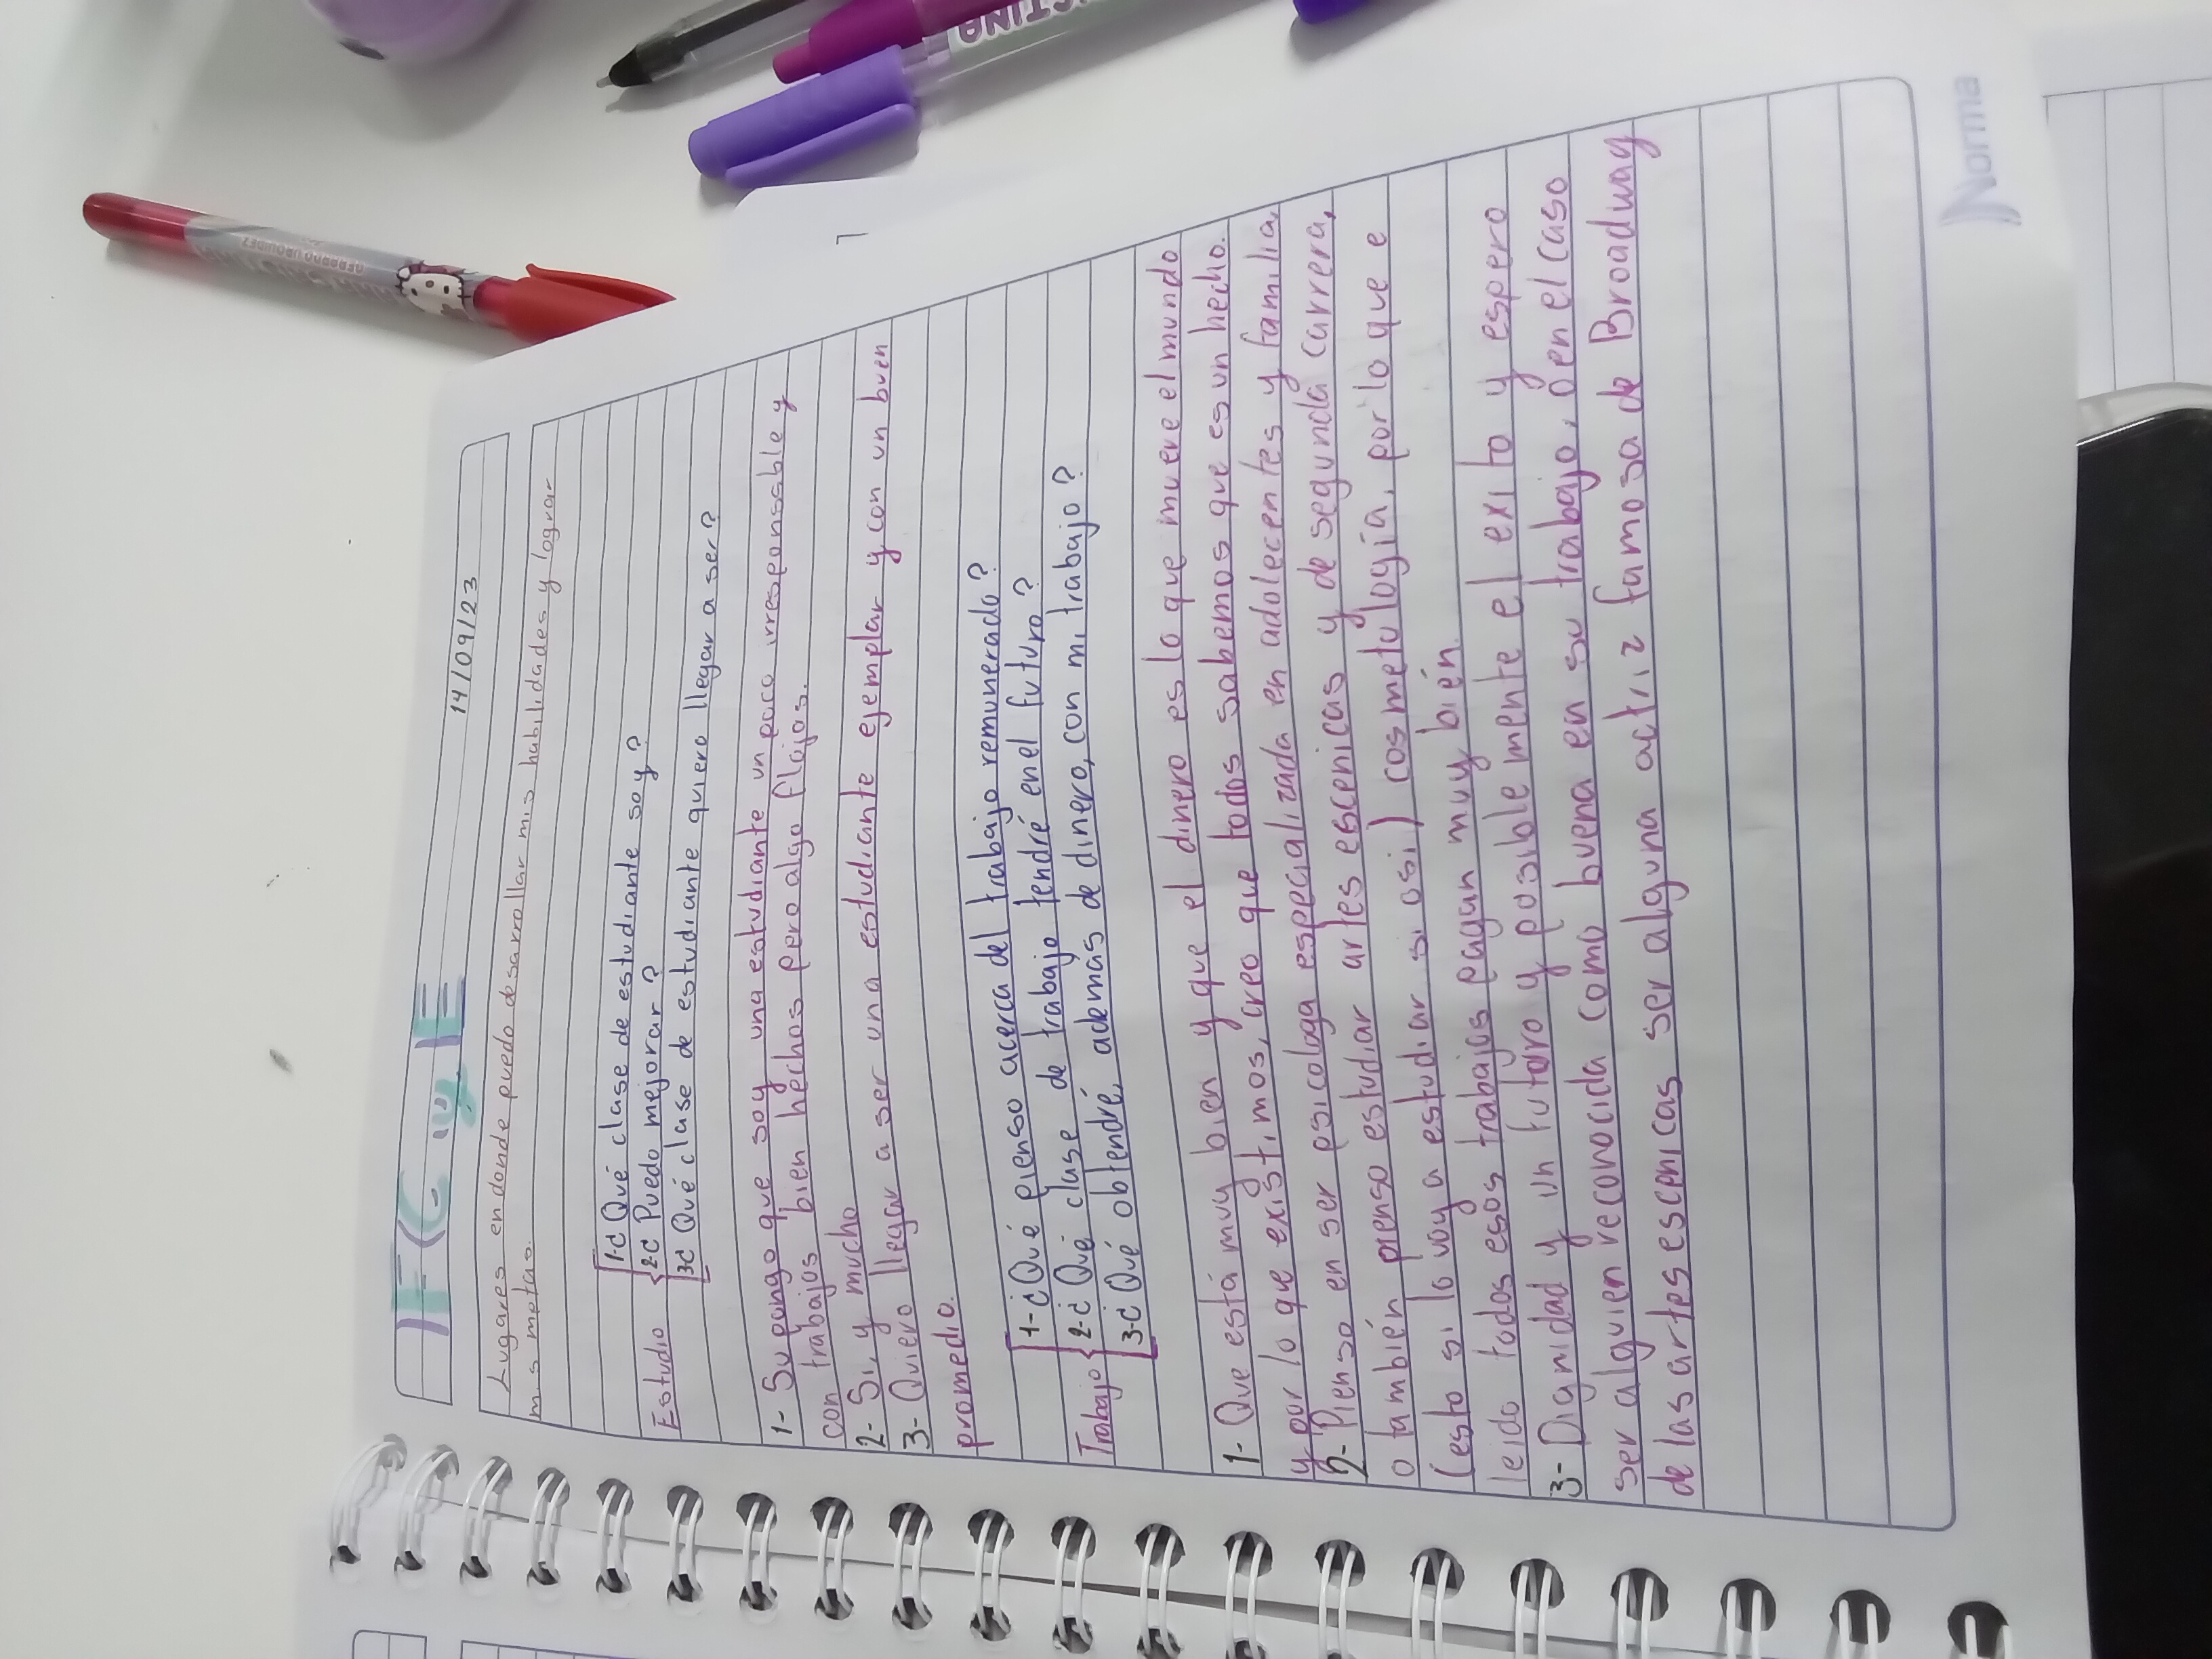 F.C. y E
14/09/23
Lugares en donde puedo desarrollar mis habilidades y lograr
mis metas.
1-¿Qué clase de estudiante soy?
2-¿Puedo mejorar?
Estudio
3-¿Qué clase de estudiante quiero llegar a ser?
1- Supongo que soy una estudiante un poco irresponssble y
con trabajos bien hechos pero algo flojos.
2- Si, y mucho
3- Quiero llegar a ser una estudiante ejemplar y con un buen
promedio.
1-¿Qué pienso acerca del trabajo remunerado?
2-¿Qué clase de trabajo tendré en el futuro?
Trabajo
3-¿Qué obtendré, además de dinero, con mi trabajo?
1- Que está muy bien y que el dinero es lo que mueve el mundo
y por lo que existimos, creo que todos sabemos que es un hecho.
2- Pienso en ser psicologa especializada en adolecentes y familia,
o también pienso estudiar artes escenicas y de segunda carrera,
(esto si lo voy a estudiar si o si) cosmetología, por lo que e
leido todos esos trabajos pagan muy bién.
3- Dignidad y un futuro y posiblemente el exito y espero
ser alguien reconocida como buena en su trabajo, o en el caso
de las artes escenicas ser alguna actriz famosa de Broadway
Norma